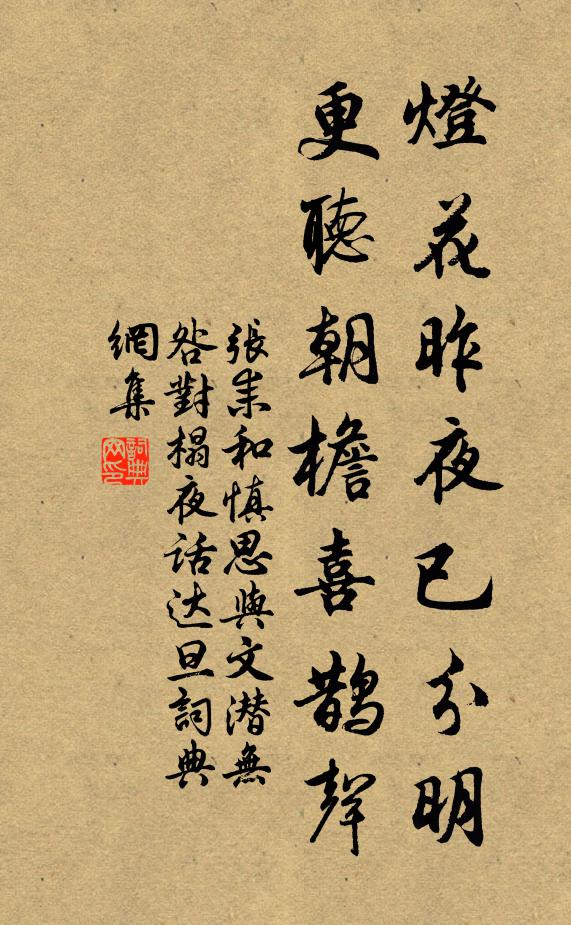 燈花昨夜已分明
更聽朝檐喜鵲聲
張耒和慎思與文潜無
咎對榻夜話达旦詞典
網集
詞典网印